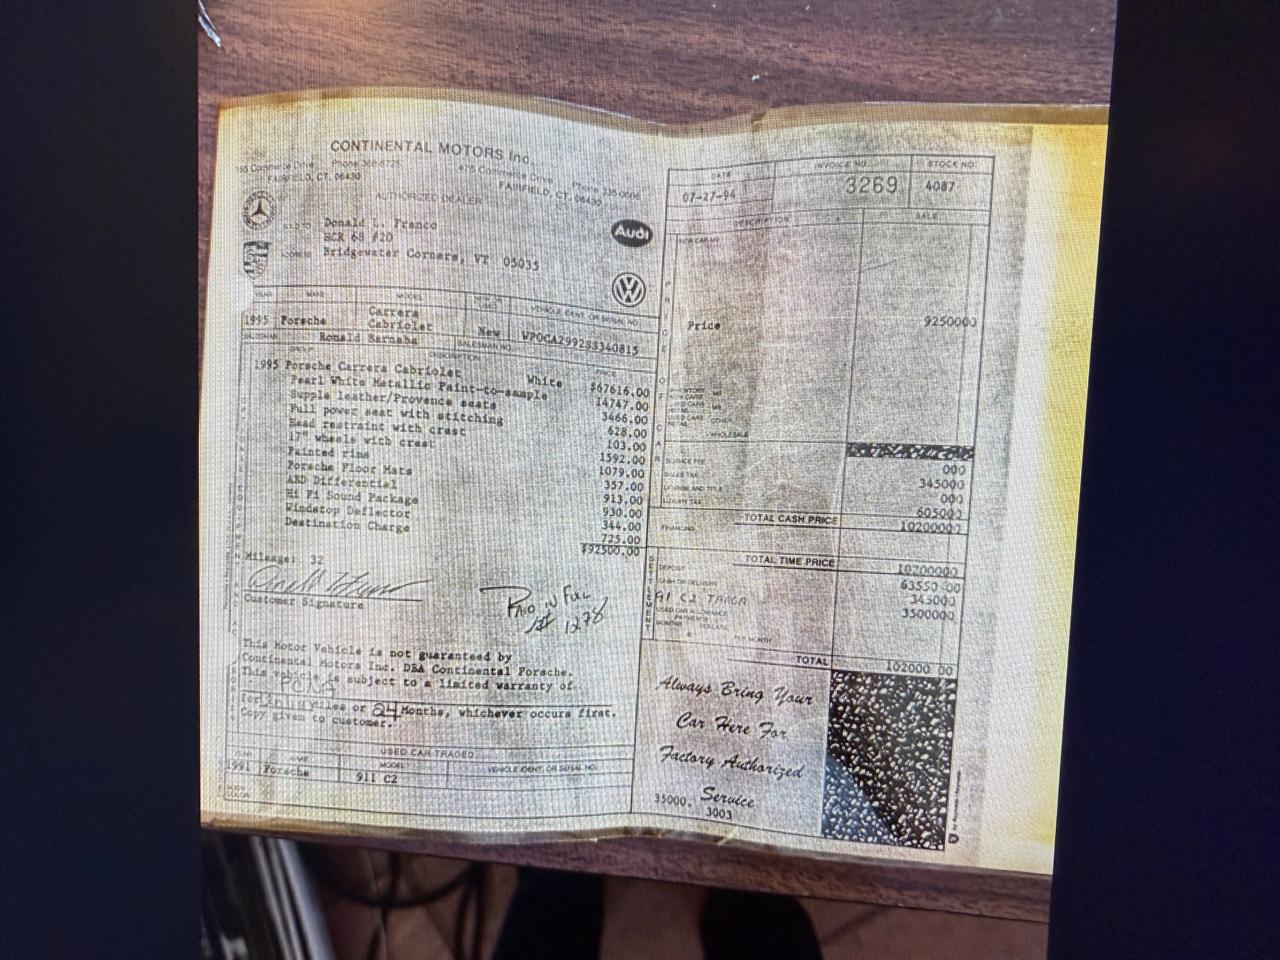 CONTINENTAL MOTORS Inc.
Commerce Drive Phone 368-6725
FAIRFIELD, CT. 06430
475 Commerce Drive Phone
FAIRFIELD, CT. 06430
AUTHORIZED DEALER
Audi
Donald L. Franco
HCR 68 #20
Bridgewater Corners, VT 05035
DATE INVOICE NO. STOCK NO.
07-27-94 3269 4087
DESCRIPTION SALE
YEAR MAKE MODEL VEHICLE IDENT. OR SERIAL NO.
1995 Porsche Carrera Cabriolet New
SALESMAN Ronald Barnaba SALESMAN NO.
DESCRIPTION PRICE
1995 Porsche Carrera Cabriolet White $67616.00
Pearl White Metallic Paint-to-sample 14747.00
Supple leather/Provence seats 3466.00
Full power seat with stitching 628.00
Head restraint with crest 103.00
17" wheels with crest 1592.00
Painted rims 1079.00
Porsche Floor Mats 357.00
ABD Differential 913.00
Hi Fi Sound Package 930.00
Windstop Deflector 344.00
Destination Charge 725.00
$92500.00
Mileage: 32
Customer Signature
PAID IN FULL
1278
This Motor Vehicle is not guaranteed by
Continental Motors Inc. DBA Continental Porsche.
This vehicle is subject to a limited warranty of
PCNA
for miles or 24 Months, whichever occurs first.
Copy given to customer.
USED CAR TRADED
YEAR MAKE MODEL VEHICLE IDENT. OR SERIAL NO.
1991 Porsche 911 C2
Price 9250000
WHOLESALE
SERVICE FEE 000
SALES TAX 345000
LICENSE AND TITLE 000
LUXURY TAX 605000
TOTAL CASH PRICE 10200000
FINANCING
TOTAL TIME PRICE 10200000
SETTLEMENT
DEPOSIT 63550 00
CASH ON DELIVERY 345000
91 C2 TARGA 3500000
USED CAR ALLOWANCE
PAYMENTS
MONTHS DOLLARS PER MONTH
TOTAL 102000 00
Always Bring Your
Car Here For
Factory Authorized
Service
35000.
3003